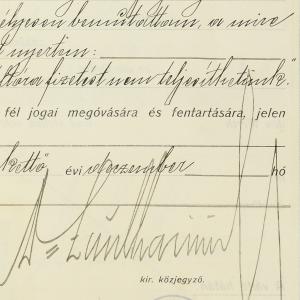 élyesen bemutattam, a mire
t nyertem:
ltóra fizetést nem teljesíthetünk."
fél jogai megóvására és fentartására, jelen
kettő évi deczember hó
kir. közjegyző.